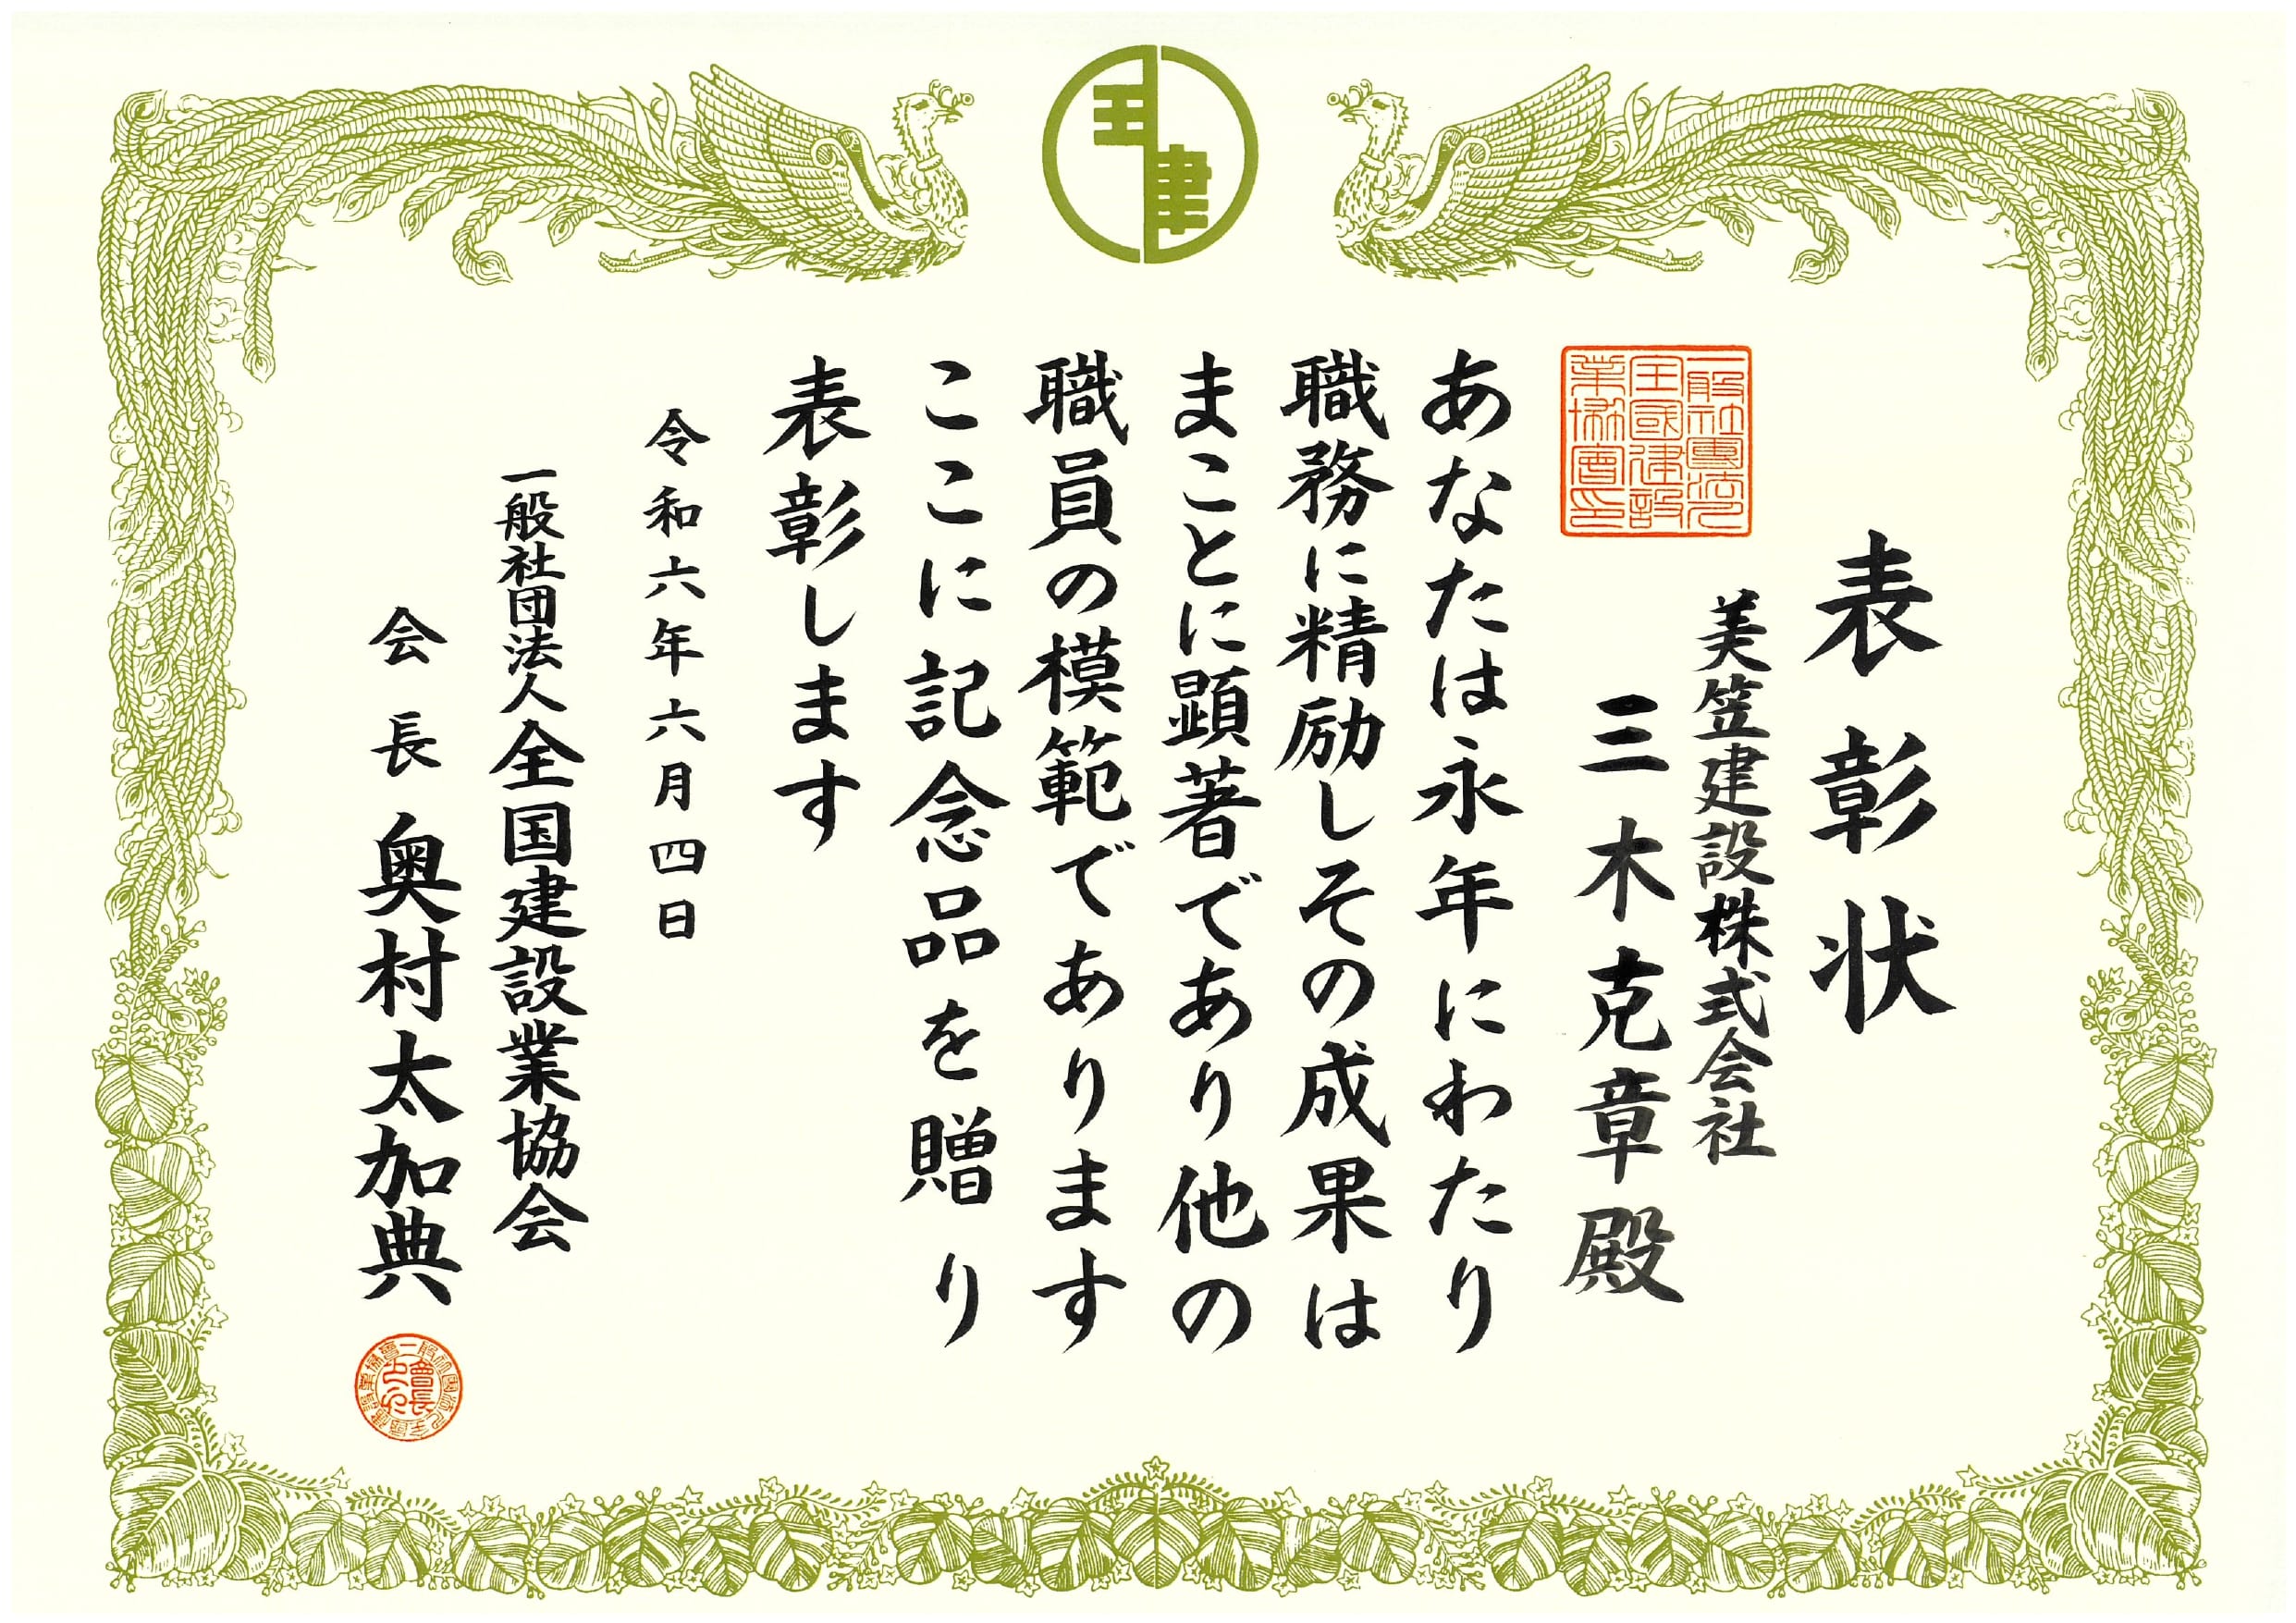 表彰状
美笠建設株式会社
三木克章殿
あなたは永年にわたり
職務に精励しその成果は
まことに顕著であり他の
職員の模範であります
ここに記念品を贈り
表彰します
令和六年六月四日
一般社団法人全国建設業協会
会長 奥村太加典
一般社團法人
全國建設
業協會印